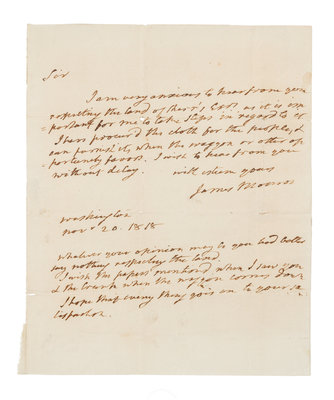 Sir
I am very anxious to hear from you
respecting the land of Mr. Carr's Estt. as it is im
=portant for me to take steps in regard to it
I have procurd this cloth for the people, &
can furnish it, when the waggon or other op
portunity favors. I wish to hear from you
without delay.
with esteem yours
James Monroe
Washington
novr 20. 1818
whatever your opinion may be you had better
say nothing respecting the land.
I wish the papers mentiond when I saw you
& the trunk when the waggon comes down
I hope that every thing goes on to your sa
tisfaction.